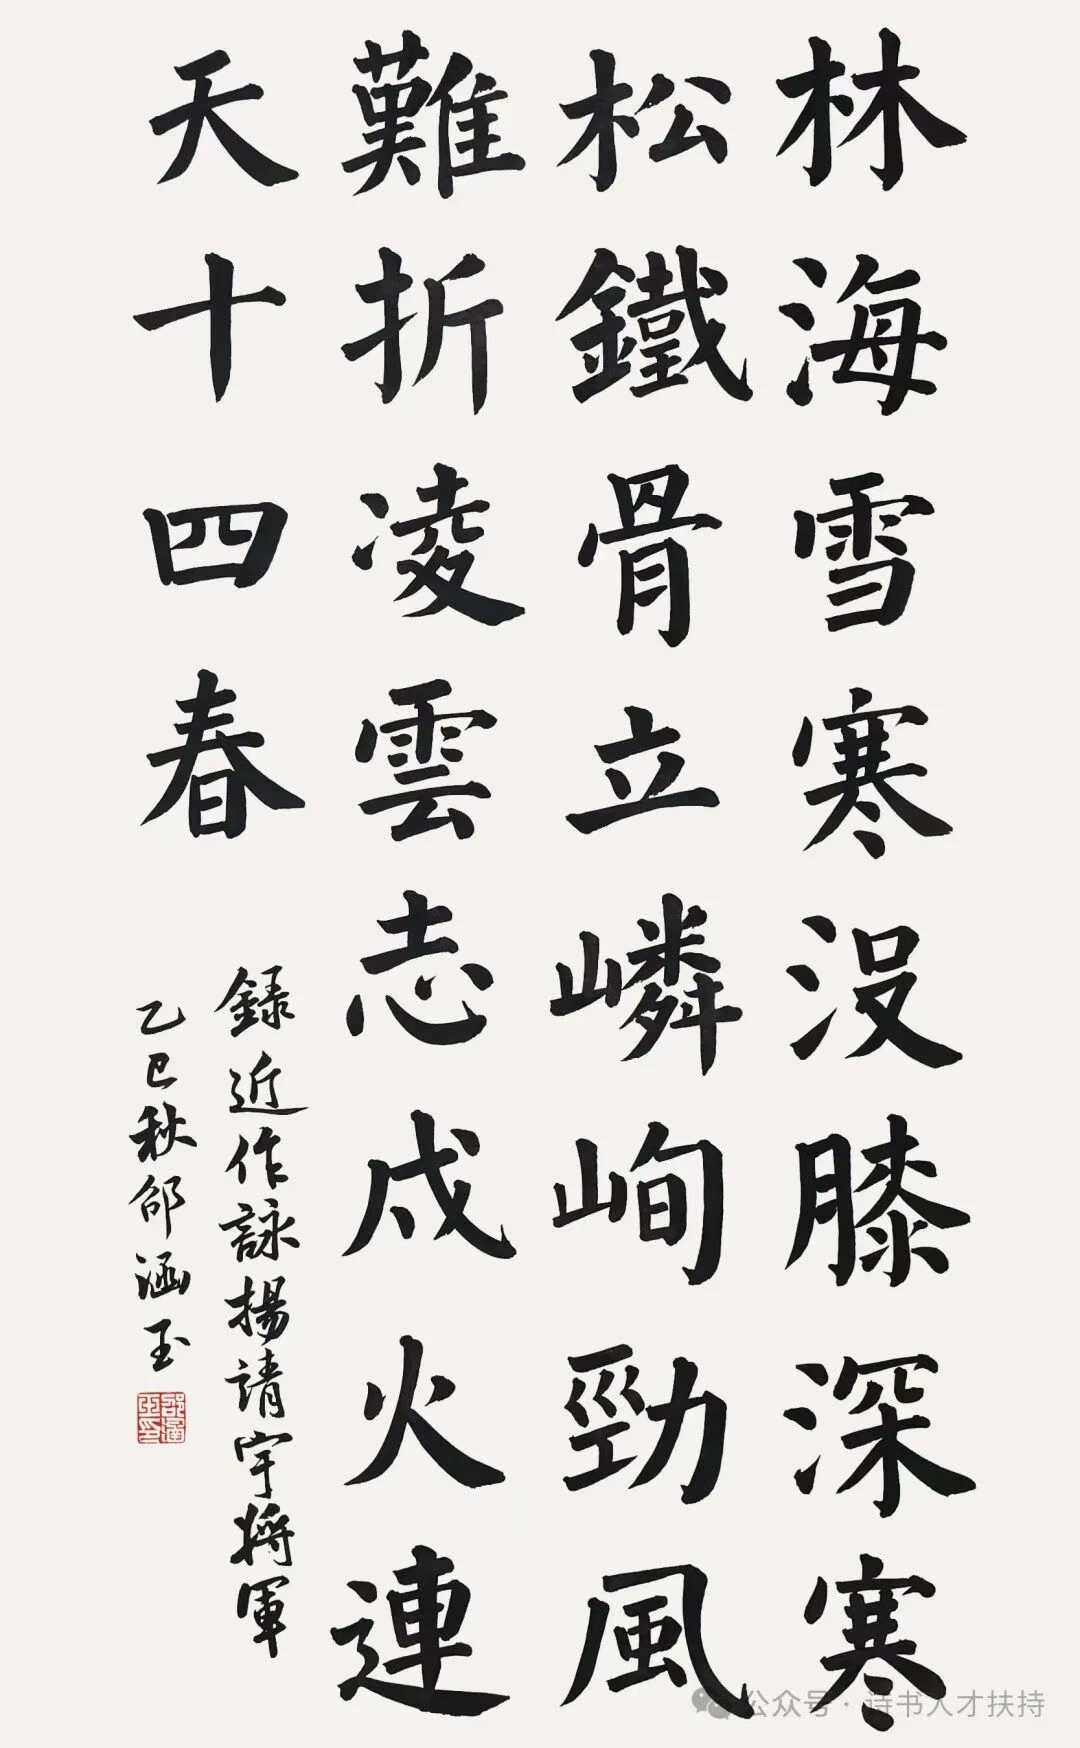 林海雪寒没膝深寒
松鐵骨立嶙峋勁風
難折凌雲志戍火連
天十四春
錄近作詠揚靖宇將軍
乙巳秋邵涵玉
邵涵玉印
公众号·诗书人才扶持